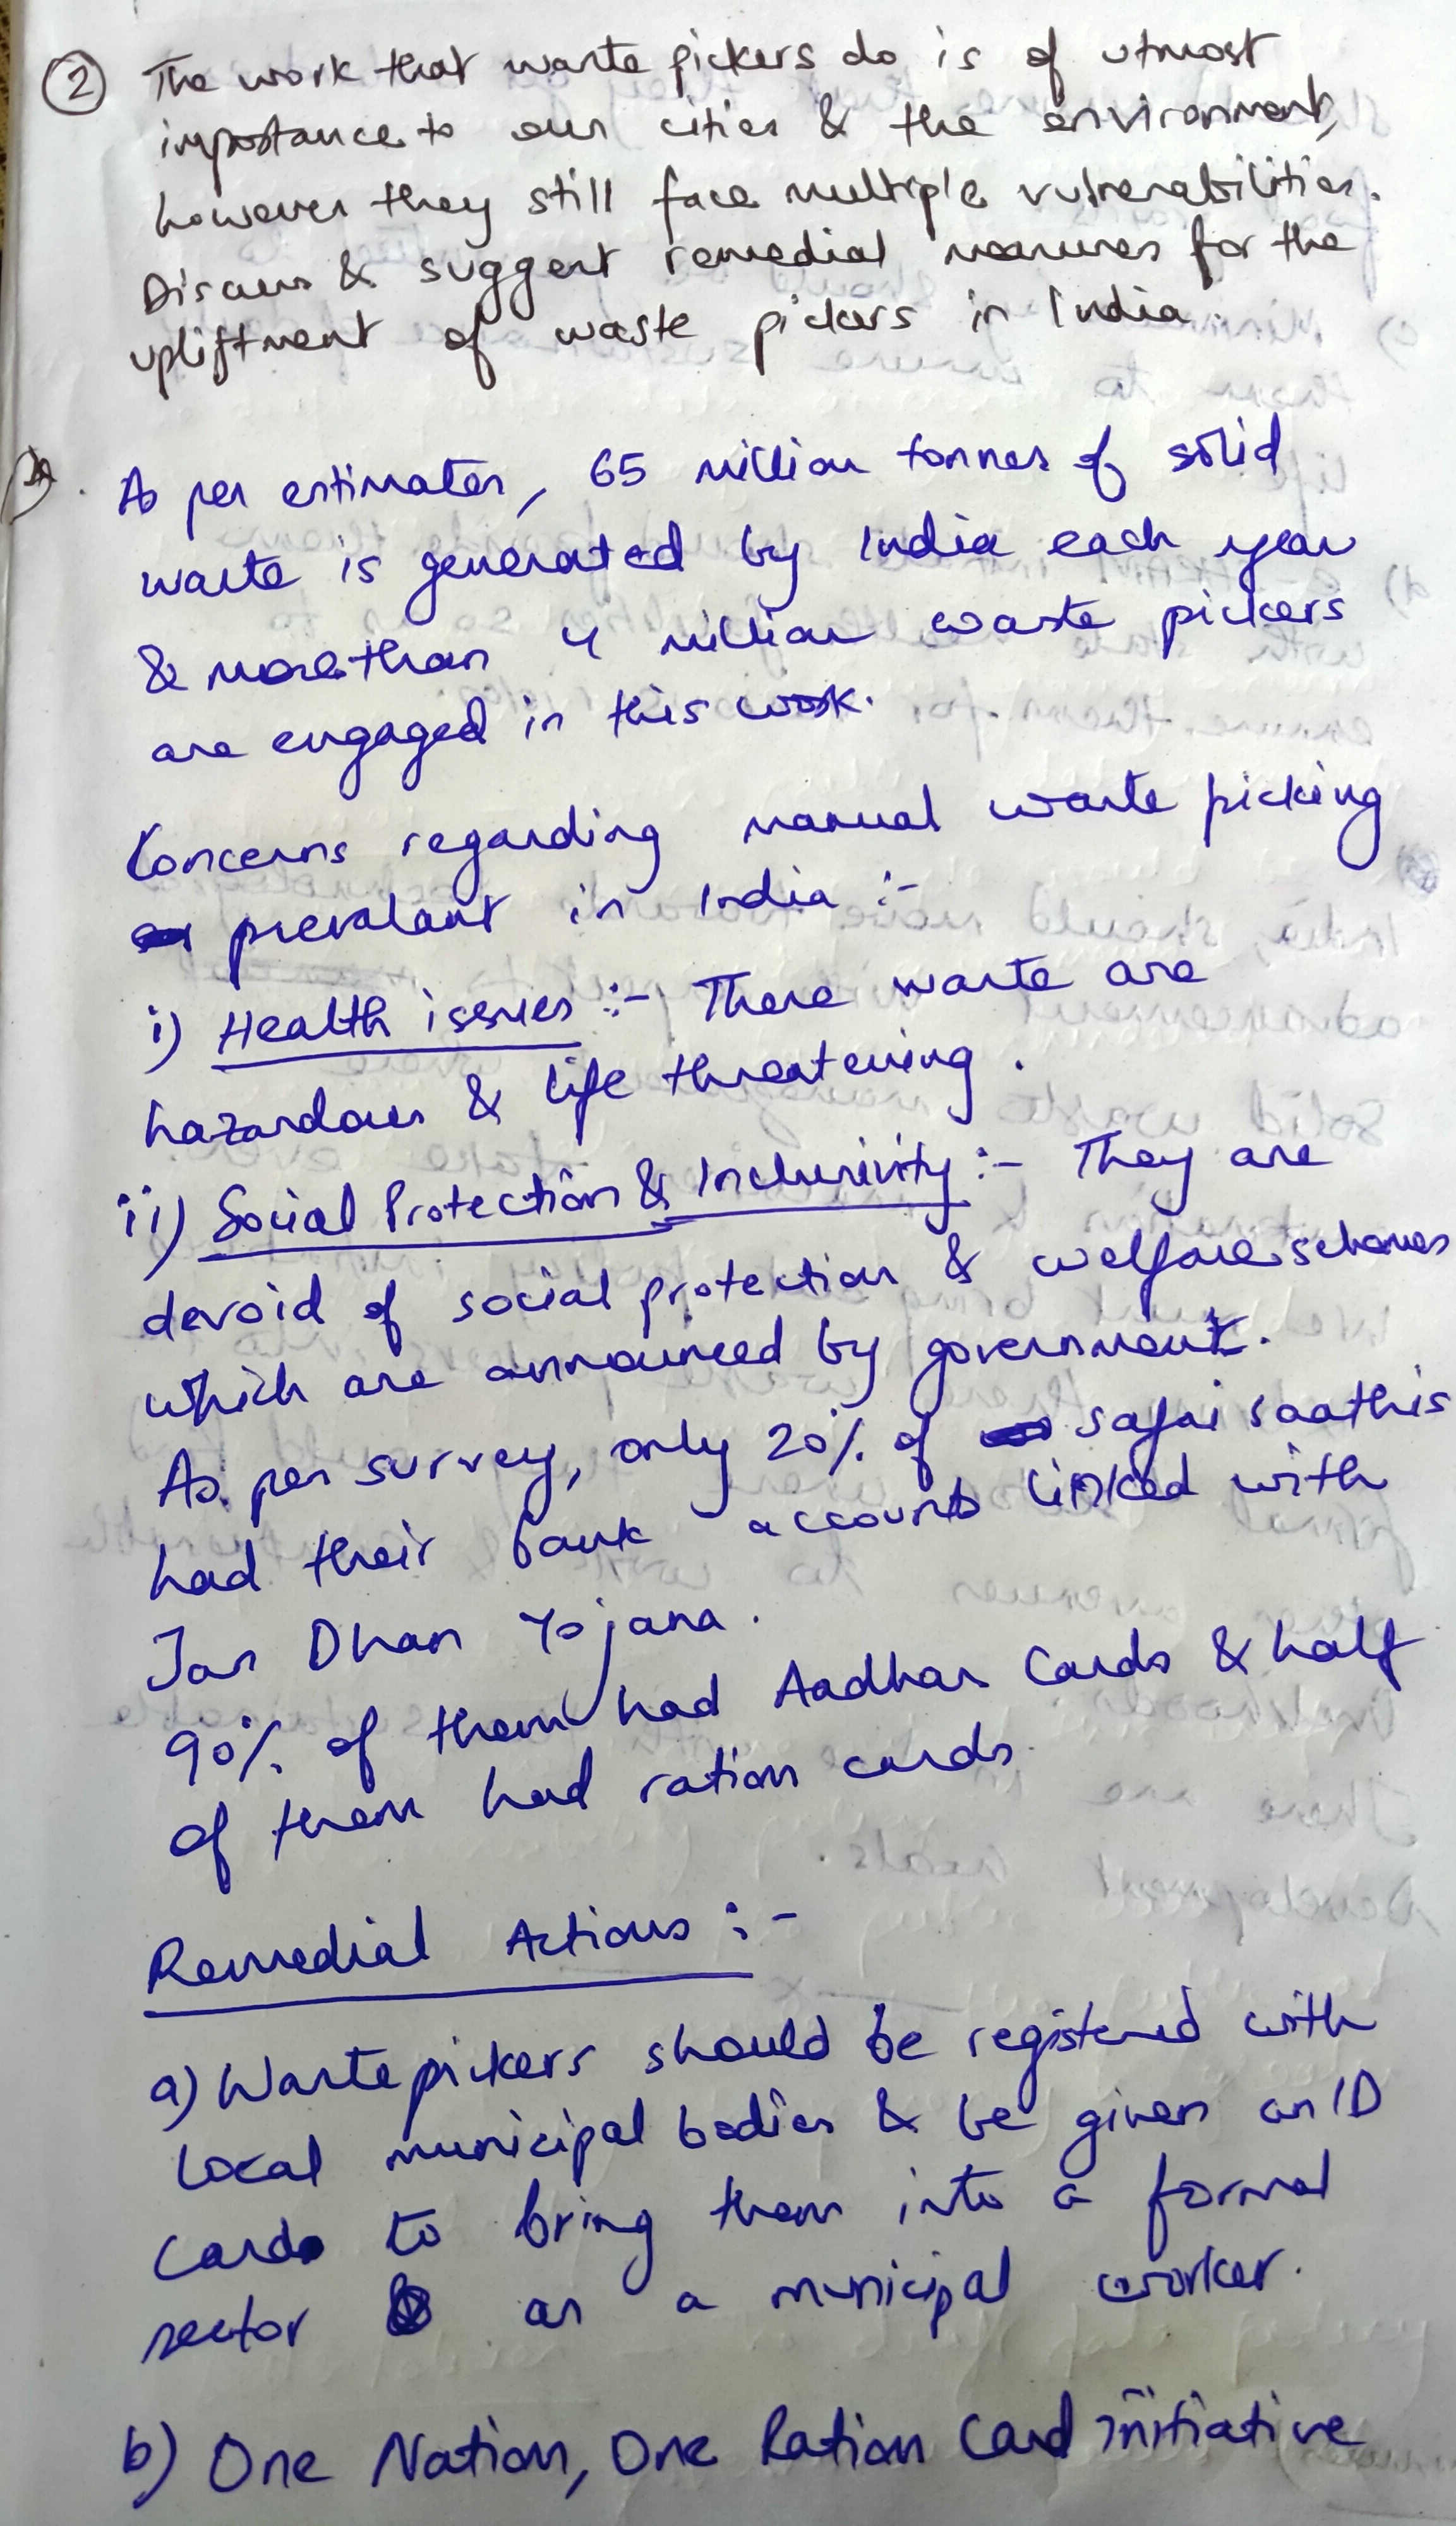 2 The work that waste pickers do is of utmost
importance to our cities & the environment,
however they still face multiple vulnerabilities.
Discuss & suggest remedial measures for the
upliftment of waste pickers in India.
As per estimates, 65 million tonnes of solid
waste is generated by India each year
& more than 4 million waste pickers
are engaged in this work.
Concerns regarding manual waste picking
prevalant in India :-
i) Health issues :- These waste are
hazardous & life threatening.
ii) Social Protection & Inclusivity :- They are
devoid of social protection & welfare schemes
which are announced by government.
As per survey, only 20% of safai saathis
had their bank accounts linked with
Jan Dhan Yojana.
90% of them had Aadhar Cards & half
of them had ration cards.
Remedial Actions :-
a) Waste pickers should be registered with
local municipal bodies & be given an ID
card to bring them into a formal
sector as a municipal worker.
b) One Nation, One Ration Card initiative